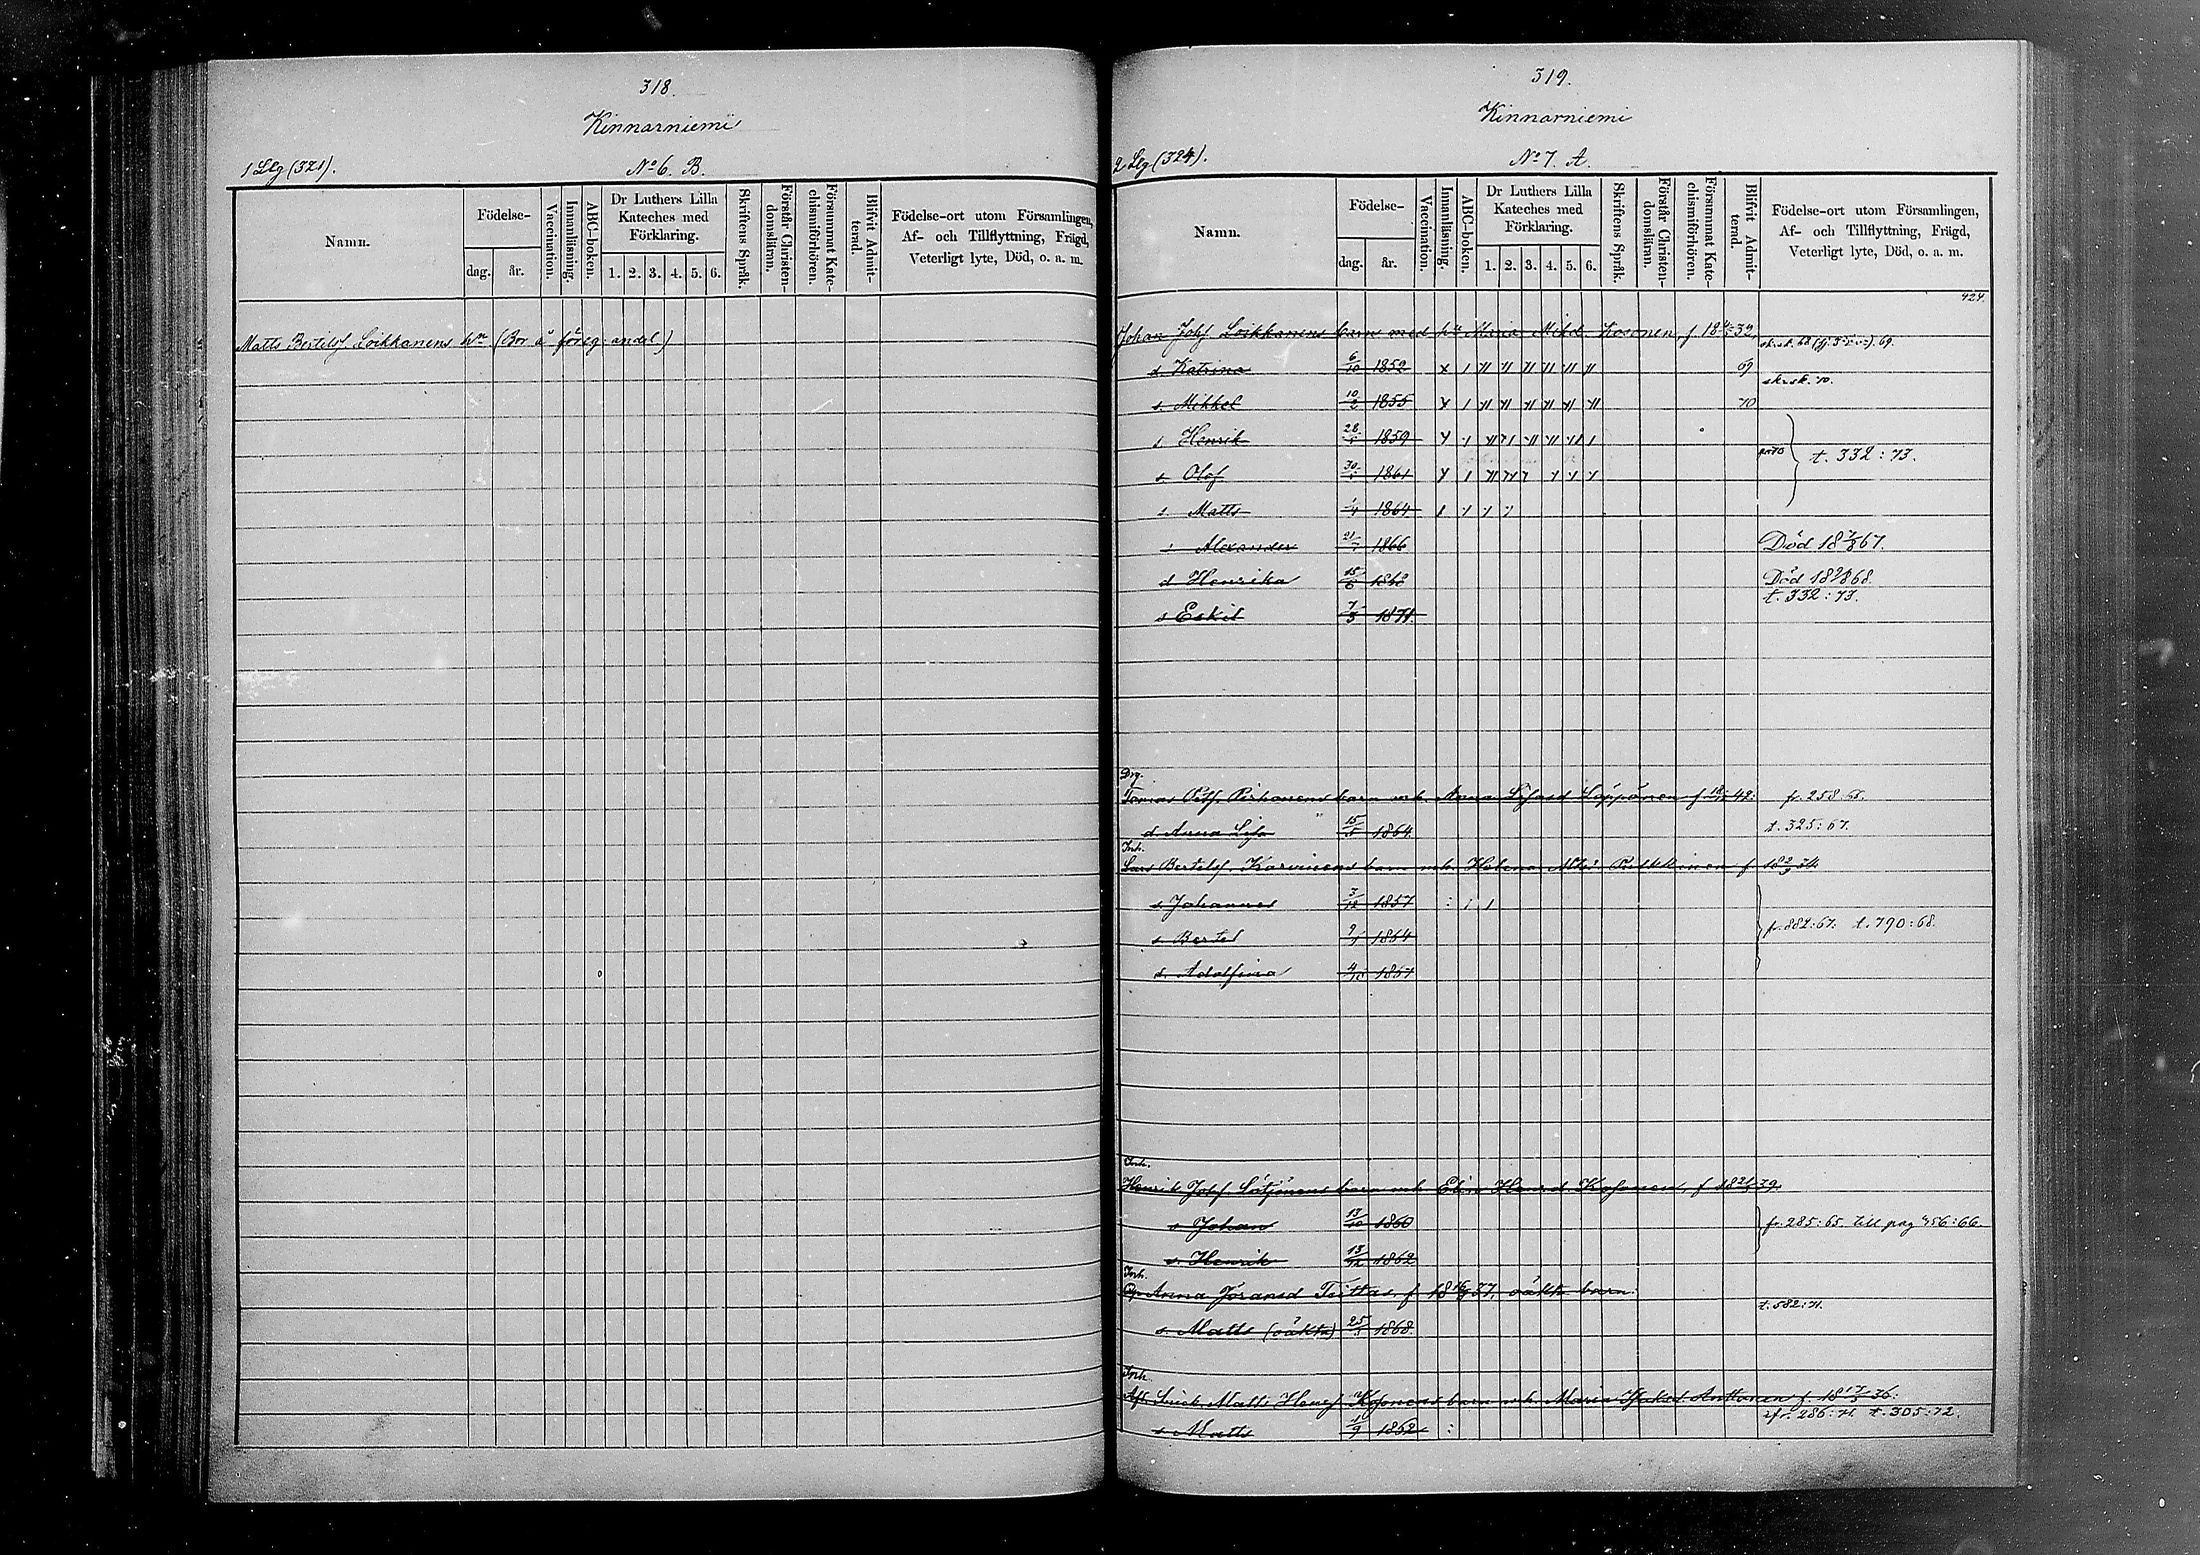 318.
Kinnarniemi
1 Llg (321).
No 6. B.
Namn.
Födelse-
dag.
år.
Vaccination.
Innanläsning.
ABC-boken.
Dr Luthers Lilla
Kateches med
Förklaring.
1. 2. 3. 4. 5. 6.
Skriftens Språk.
Förstår Christen-
domsläran.
Försummat Kate-
chismiförhören.
Blifvit Admit-
terad.
Födelse-ort utom Församlingen,
Af- och Tillflyttning, Frägd,
Veterligt lyte, Död, o. a. m.
Matts Bertilsf. Loikkanens hu (Bor å föreg. andel)
319.
Kinnarniemi
2 Llg (324).
No 7. A.
Namn.
Födelse-
dag.
år.
Vaccination.
Innanläsning.
ABC-boken.
Dr Luthers Lilla
Kateches med
Förklaring.
1. 2. 3. 4. 5. 6.
Skriftens Språk.
Förstår Christen-
domsläran.
Försummat Kate-
chismiförhören.
Blifvit Admit-
terad.
Födelse-ort utom Församlingen,
Af- och Tillflyttning, Frägd,
Veterligt lyte, Död, o. a. m.
424.
Johan Johsf. Loikkanens barn med hu Maria Mikd. Kosonen, f. 32
d. Katrina 6/10 1852 69
skrsk. 70.
s. Mikkel 10/2 1855 70
s. Henrik 28 1859
t. 332:73.
s. Olof 30 1861
s. Matts 1864
s. Alexander 21/7 1866 Död 18 7/8 67.
d. Henrika 15/6 1868 Död 68.
t. 332:73.
s. Eskil 7/3 1871
Drg.
Tomas Petf. Pirhonens barn mh. Anna 42. fr. 258:65.
d. Anna Lisa 15/5 1864 t. 325:67.
Inh.
Lars Bertelsf. Karvinens barn mh. Helena f
s. Johannes 3/12 1857
s. Bertel 9/1 1864 fr. 882:67. t. 790:68.
d. Adolfina
Inh.
Henrik Johsf. barn mh Elin Henrd. f. 39.
s. Johan 13/10 1860 fr. 285:65. till pag 456:66.
s. Henrik 13/12 1862
Inh.
Anna Jöransd Tiittas, f. 37, oäkta barn.
t. 582:71.
s. Matts (oäkta) 25 1868.
Inh.
Matts Henrsf. barn mh. Maria Anttonen f. 36.
fr. 286:71. t. 305:72.
s. Matts 1/9 1862